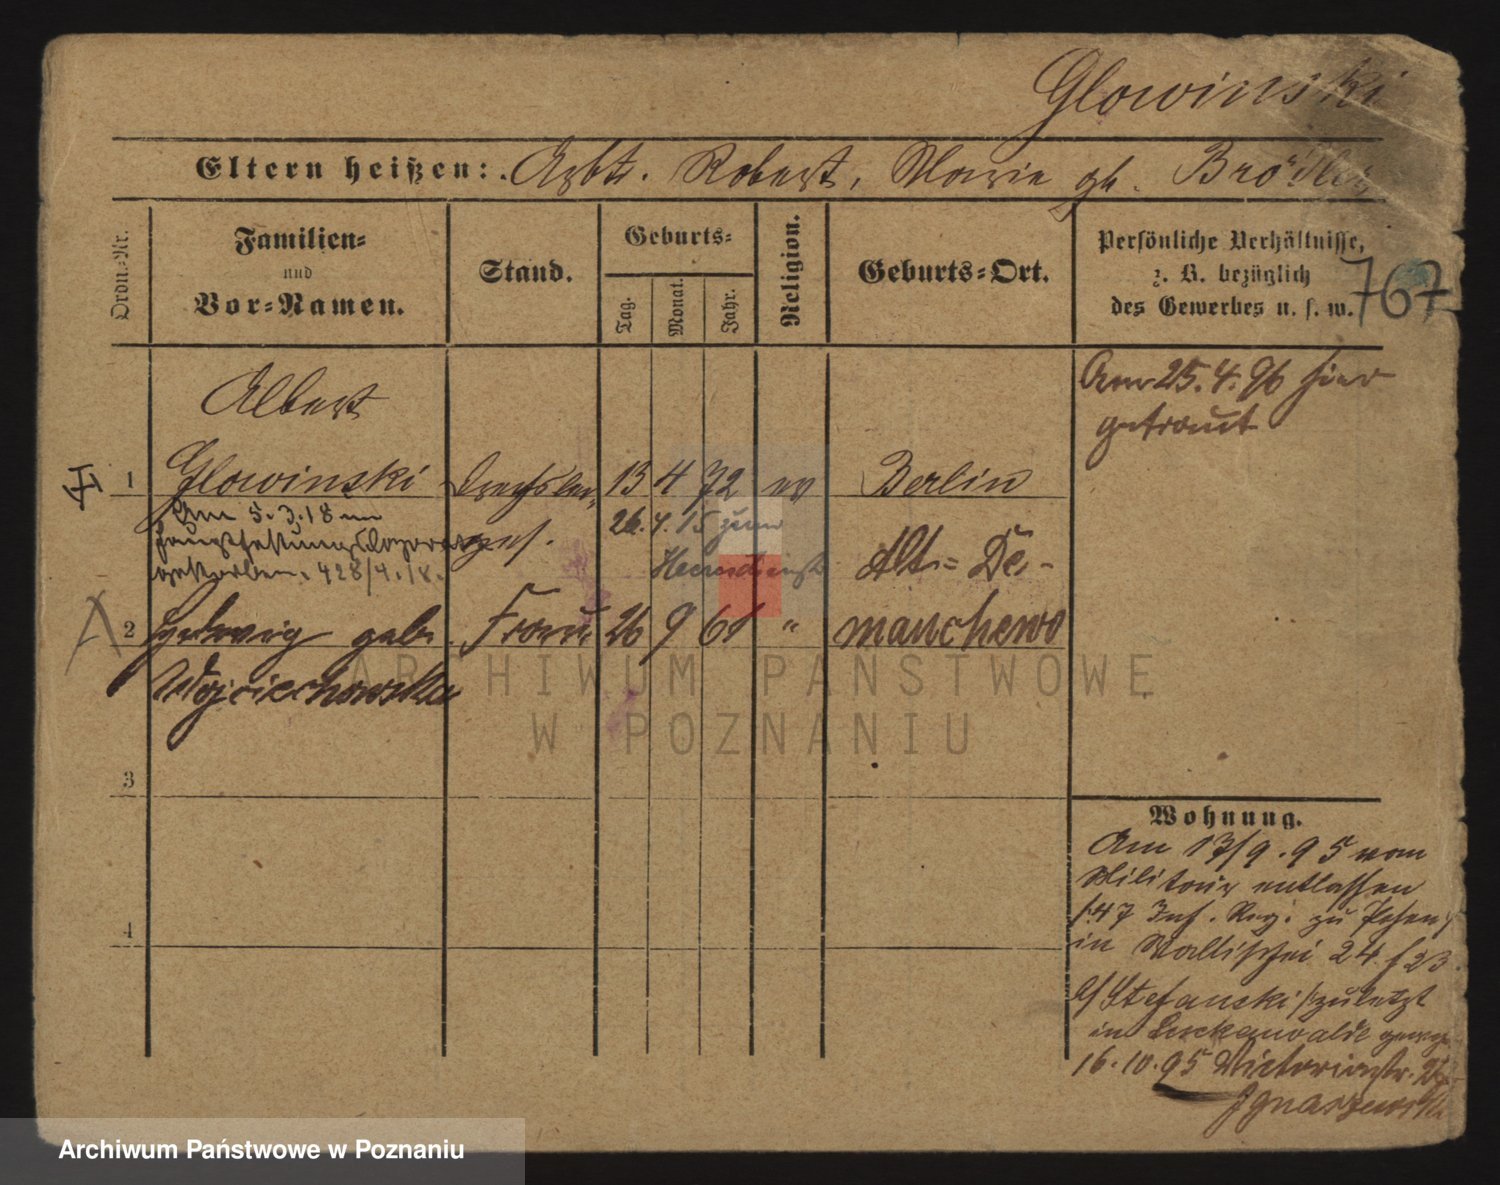 Glowinski
Eltern heißen: Arbtr. Robert, Marie gb. Brödler
Ordn.-Nr.
Familien-
und
Vor-Namen.
Stand.
Geburts-
Tag.
Monat.
Jahr.
Religion.
Geburts-Ort.
Persönliche Verhältnisse,
z. B. bezüglich
des Gewerbes u. s. w.
767
Am 25.4.96 hier
getraut
Albert
1 Glowinski Drechsler 13 4 72 ev Berlin
Am 5.3.18 im
gestorben. 428/4.18.
ges.
26.4.15 zum
Heeresdienst
Alt-De-
2 Hedwig geb. Frau 26 9 61 " manchewo
Wojciechowska
3
4
Wohnung.
Am 17/9.95 vom
Militair entlassen
47 Inf. Reg. zu Posen
in Wallischei 24 f 23.
b/Stefanski/zuletzt
in Luckenwalde
16.10.95 Victoriastr.
Ignaszewski
ARCHIWUM PAŃSTWOWE
W POZNANIU
Archiwum Państwowe w Poznaniu